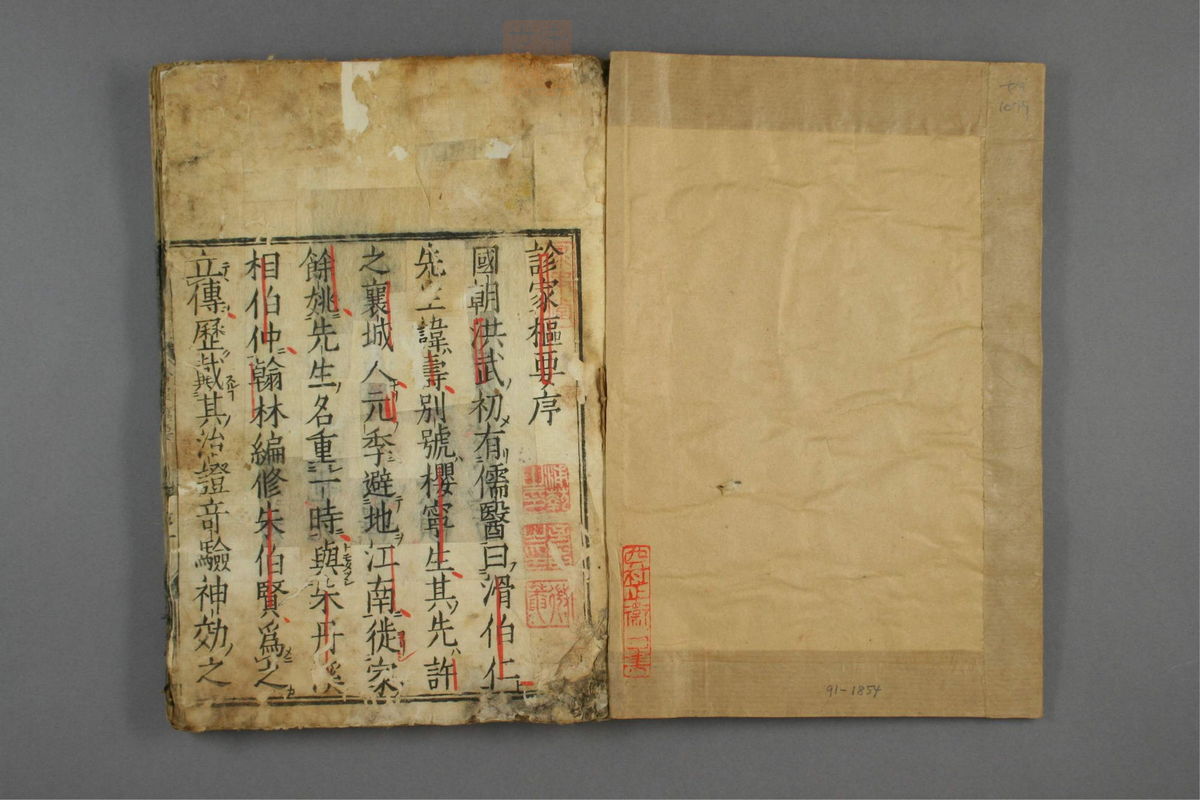 診家樞要序
國朝洪武初有儒醫曰滑伯仁
先生諱壽別號櫻寧生其先許
之襄城人元季避地江南徙家
餘姚先生名重一時與朱丹溪
相伯仲翰林編修朱伯賢爲之
立傳歷載其治證奇驗神効之
91-1854